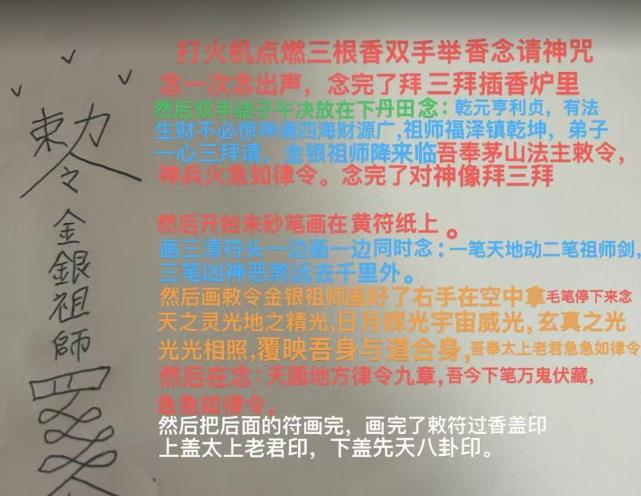 打火机点燃三根香双手举香念请神咒
念一次念出声，念完了拜三拜插香炉里
然后双手结子午决放在下丹田念：乾元亨利贞，有法
生财不必惊神通四海财源广,祖师福泽镇乾坤，弟子
一心三拜请，金银祖师降来临吾奉茅山法主敕令，
神兵火急如律令。念完了对神像拜三拜
然后开始朱砂笔画在黄符纸上。
画三清符头一边画一边同时念：一笔天地动二笔祖师剑,
三笔凶神恶煞远去千里外。
然后画敕令金银祖师画好了右手在空中拿毛笔停下来念
天之灵光地之精光,日月辉光宇宙威光,玄真之光
光光相照,覆映吾身与道合身,吾奉太上老君急急如律令
然后在念:天圆地方律令九章,吾今下笔万鬼伏藏,
急急如律令。
然后把后面的符画完，画完了敕符过香盖印
上盖太上老君印，下盖先天八卦印。
敕
令
金
銀
祖
師